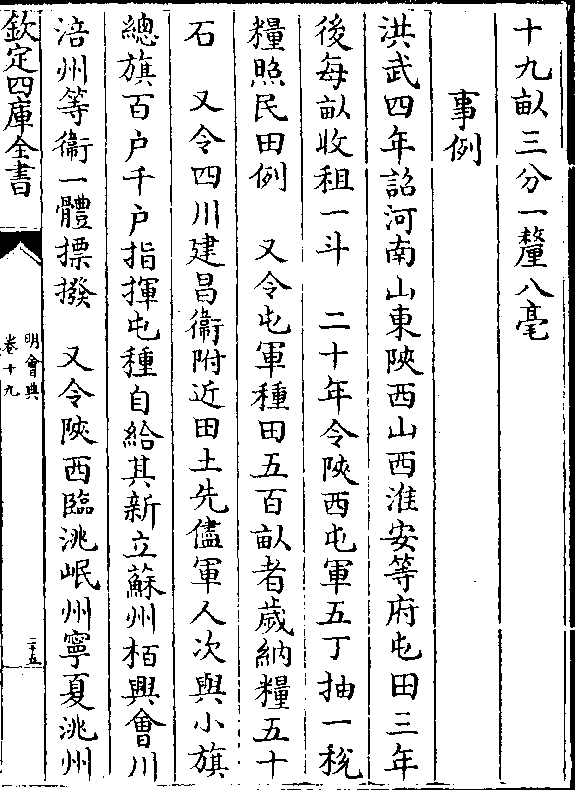 十九畝三分一釐八毫
事例
洪武四年詔河南山東陜西山西淮安等府屯田三年
後每畝收租一斗　二十年令陜西屯軍五丁抽一稅
糧照民田例　又令屯軍種田五百畝者歲納糧五十
石　又令四川建昌衞附近田土先儘軍人次與小旗
總旗百户千户指揮屯種自給其新立蘇州栢興㑹川
涪州等衞一體摽撥　又令陜西臨洮岷州寧夏洮州
欽定四庫全書
明㑹典
卷十九
二十五